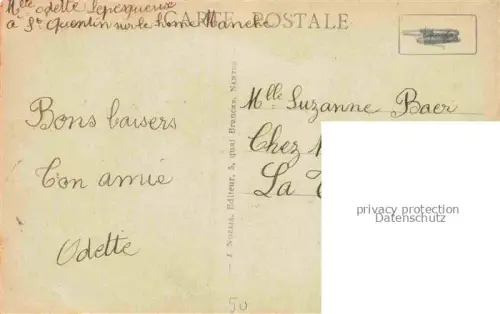 Mlle Odette Lepesqueuse
à St Quentin sur le home Manche
CARTE POSTALE
Bons baisers
Ton amie
Odette
J. NOZAIS, Editeur, 3, quai Brancas, NANTES
Mlle Suzanne Baer
Chez M
La
50
privacy protection
Datenschutz